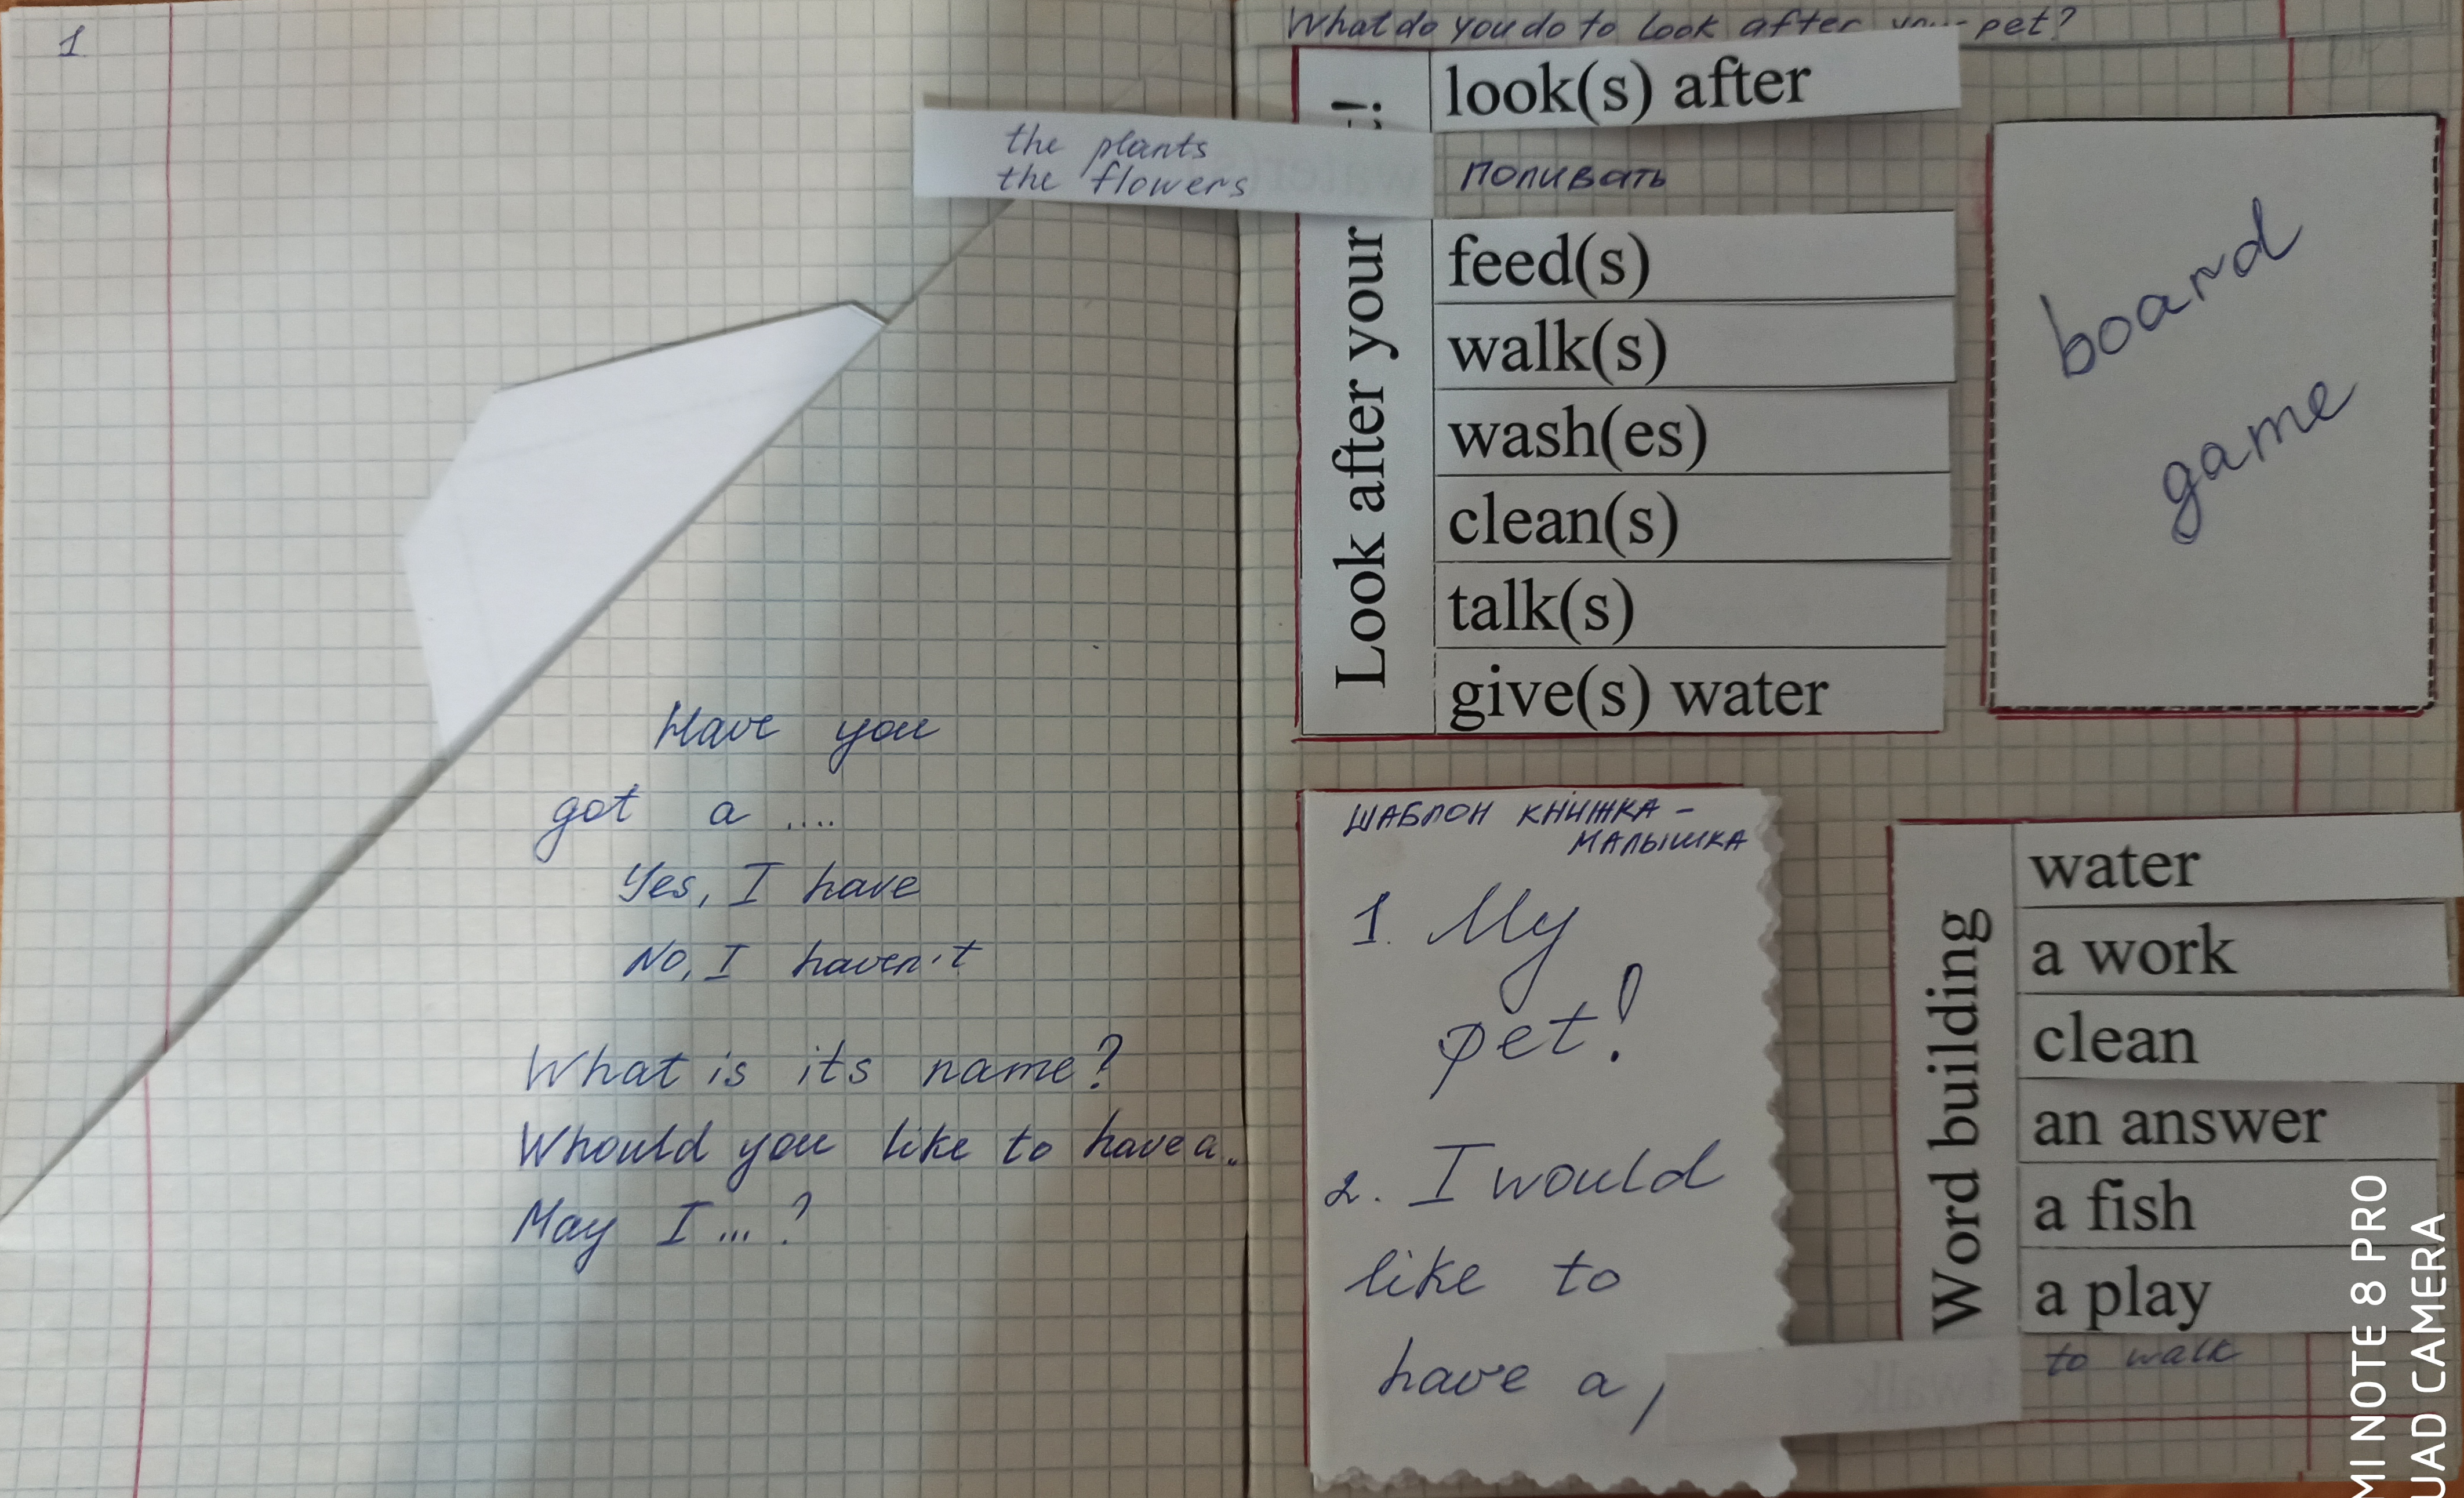 1
Have you
got a ....
Yes, I have
No, I haven't
What is its name?
Whould you like to have a..
May I ... ?
What do you do to look after your pet?
the plants
the flowers
Look after your !
look(s) after
поливать
feed(s)
walk(s)
wash(es)
clean(s)
talk(s)
give(s) water
board
game
ШАБЛОН КНИЖКА -
МАЛЫШКА
1. My
pet!
2. I would
like to
have a
Word building
water
a work
clean
an answer
a fish
a play
to walk
MI NOTE 8 PRO
UAD CAMERA